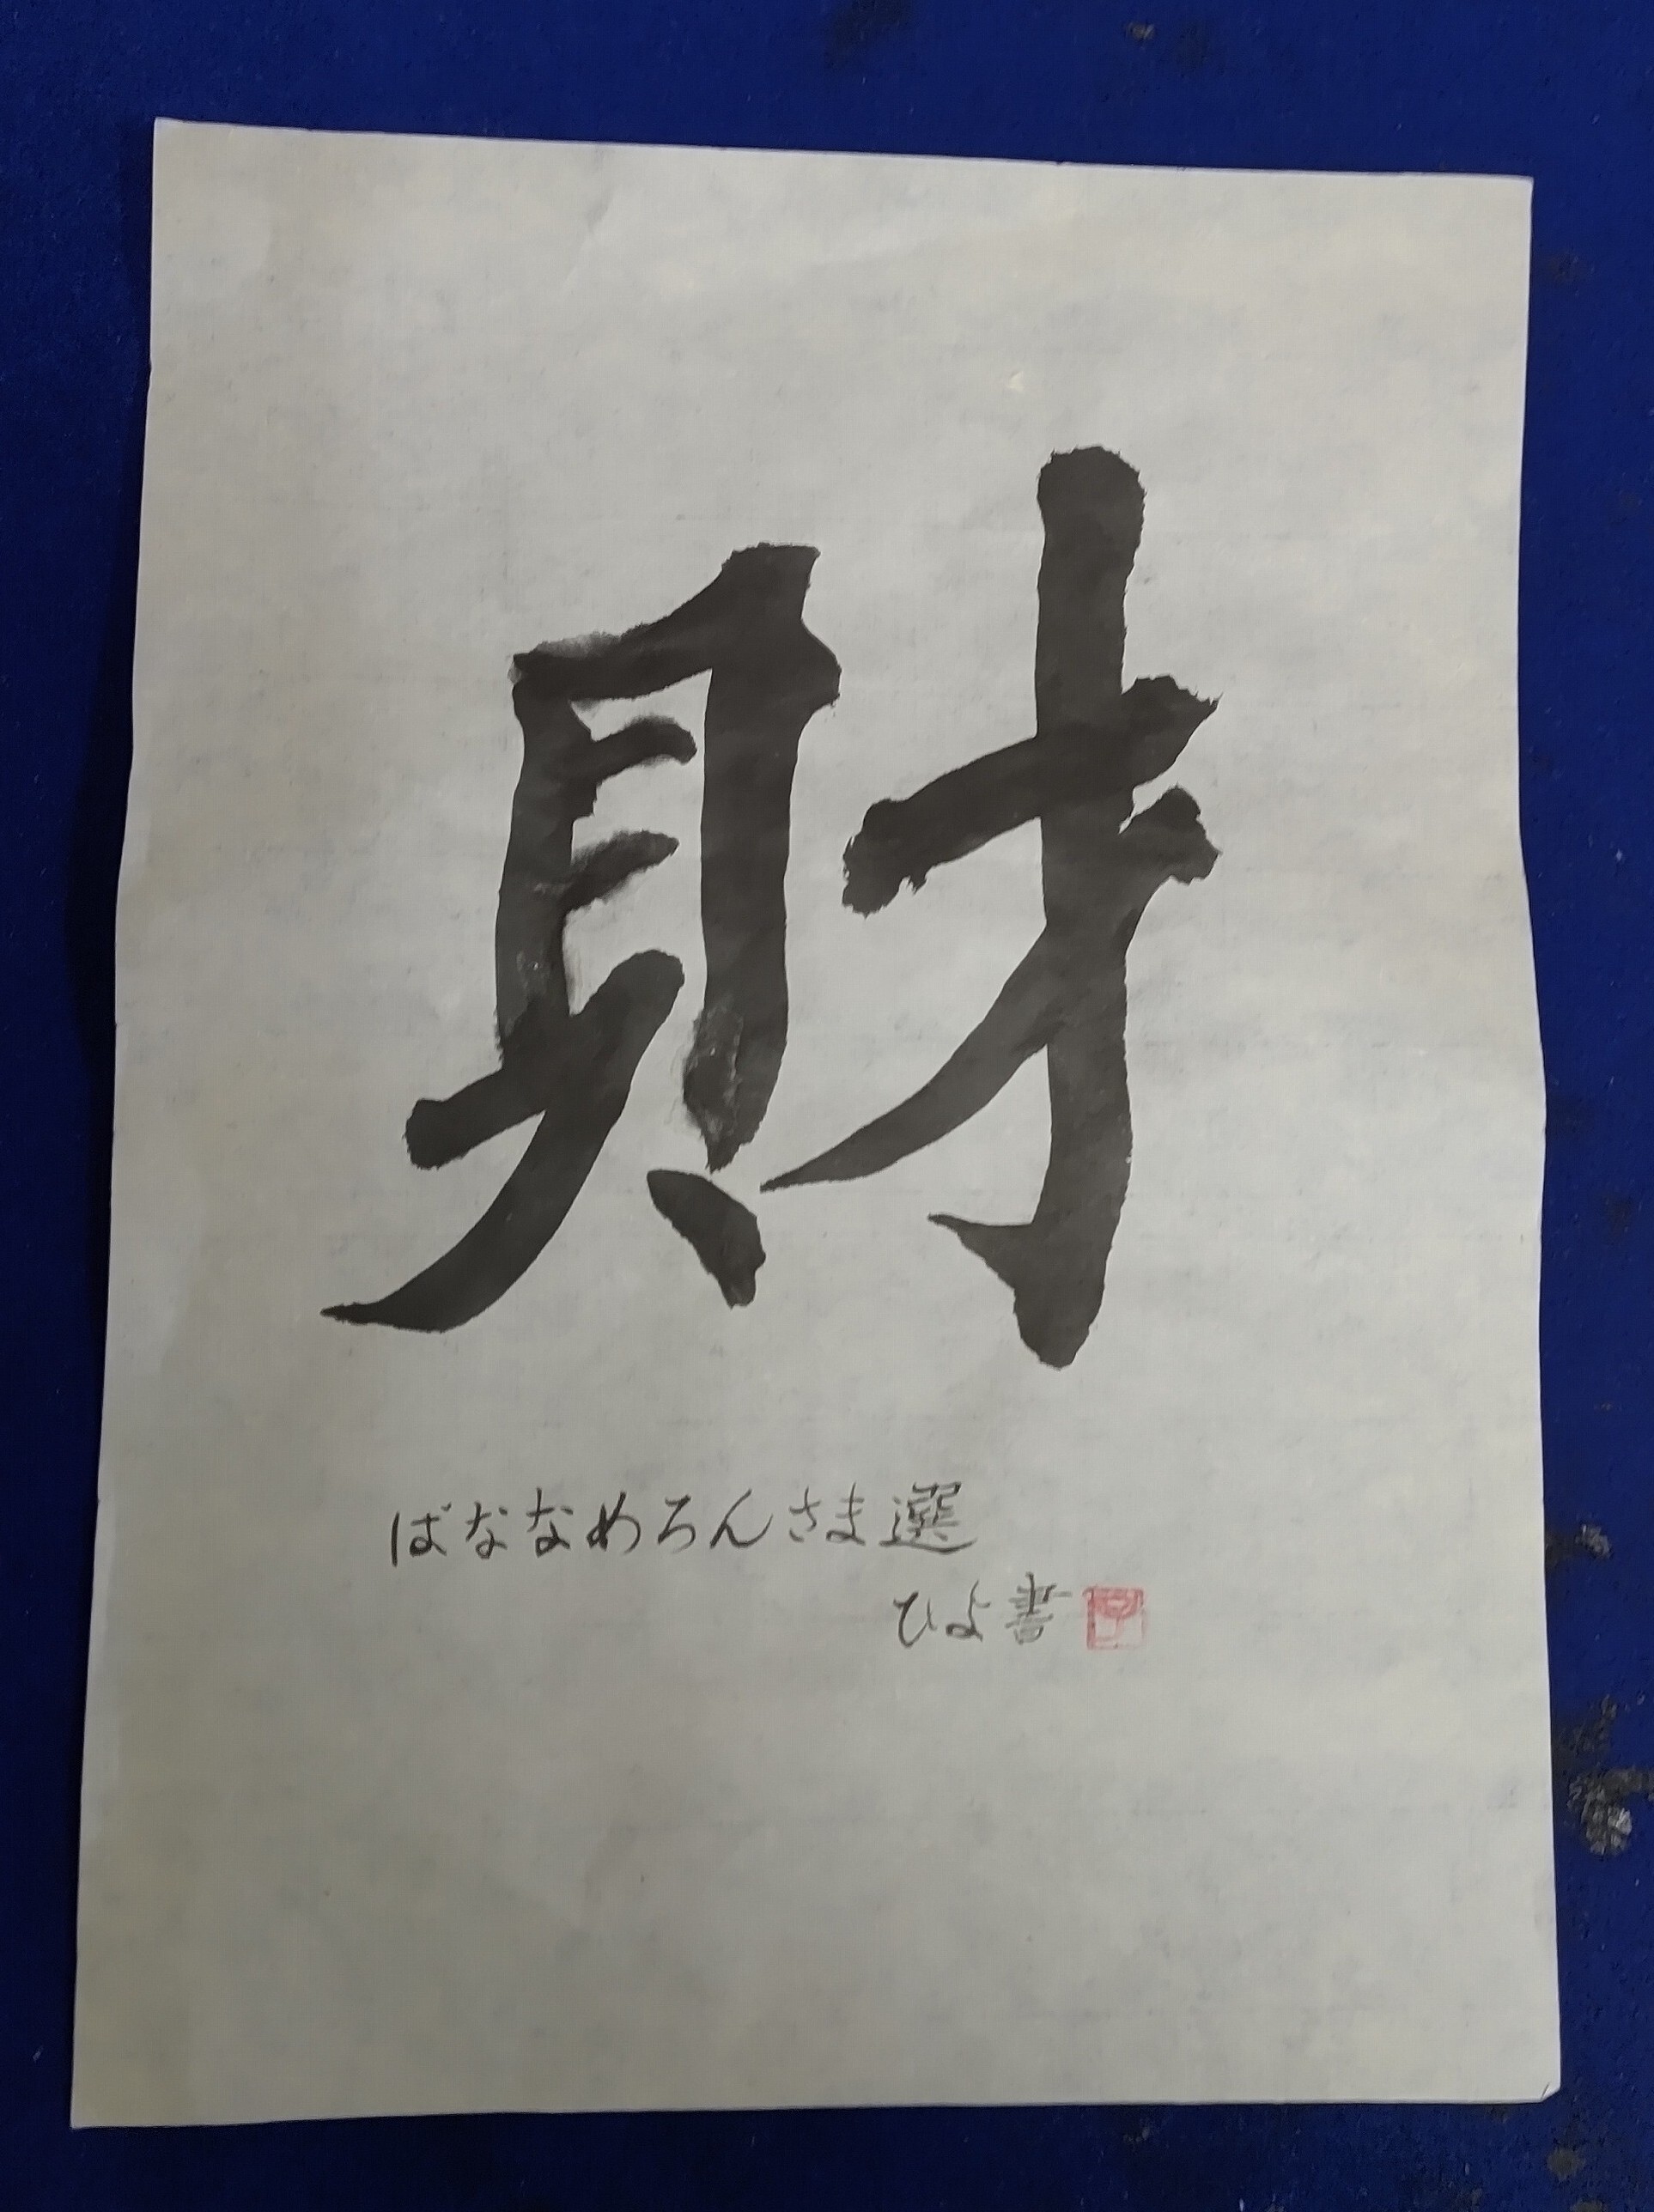 財
ばななめろんさま選
ひよ書